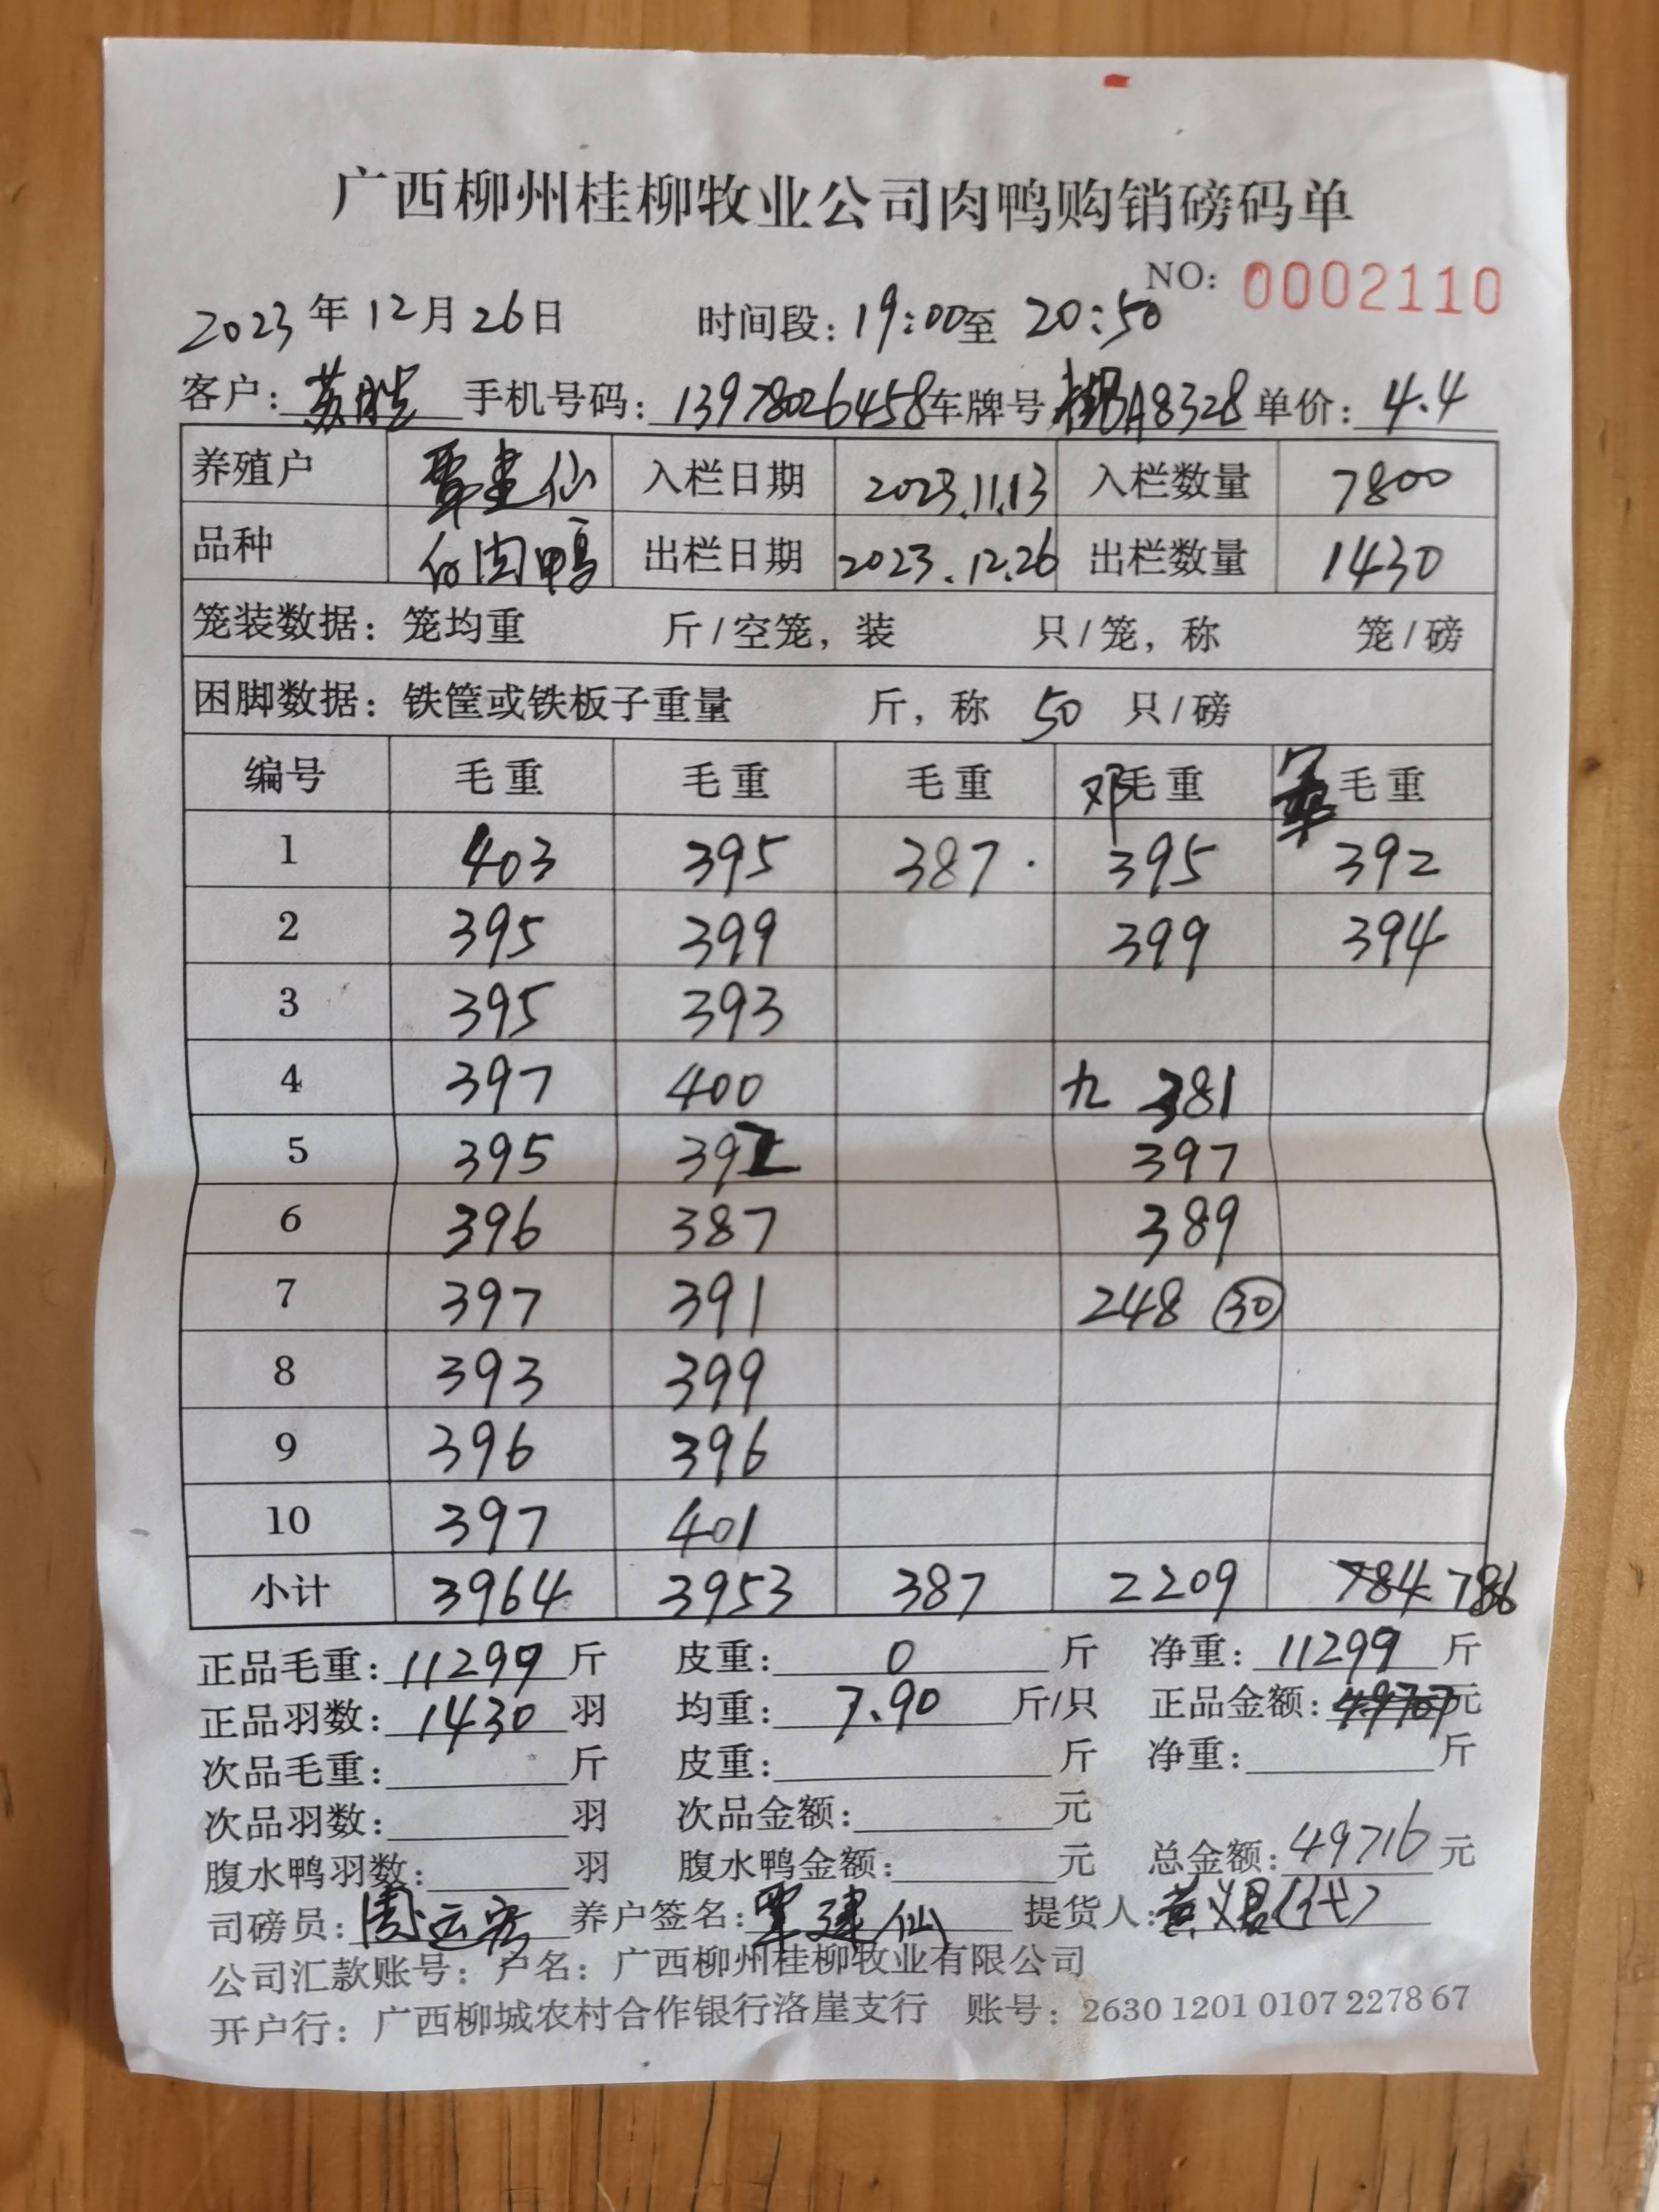 广西柳州桂柳牧业公司肉鸭购销磅码单
NO: 0002110
2023年12月26日 时间段: 19:00至 20:50
客户: 苏 手机号码: 13978026458 车牌号 桂BA8328 单价: 4.4
养殖户 覃建仙 入栏日期 2023.11.13 入栏数量 7800
品种 白肉鸭 出栏日期 2023.12.26 出栏数量 1430
笼装数据: 笼均重 斤/空笼, 装 只/笼, 称 笼/磅
困脚数据: 铁筐或铁板子重量 斤, 称 50 只/磅
编号 毛重 毛重 毛重 邓 毛重 覃 毛重
1 403 395 387 · 395 392
2 395 399 399 394
3 395 393
4 397 400 九 381
5 395 392 397
6 396 387 389
7 397 391 248 ㉚
8 393 399
9 396 396
10 397 401
小计 3964 3953 387 2209 784 786
正品毛重: 11299 斤 皮重: 0 斤 净重: 11299 斤
正品羽数: 1430 羽 均重: 7.90 斤/只 正品金额: 元
次品毛重: 斤 皮重: 斤 净重: 斤
次品羽数: 羽 次品金额: 元
腹水鸭羽数: 羽 腹水鸭金额: 元 总金额: 49716 元
司磅员: 周运 养户签名: 覃建仙 提货人: 黄(代)
公司汇款账号: 户名: 广西柳州桂柳牧业有限公司
开户行: 广西柳城农村合作银行洛崖支行 账号: 2630 1201 0107 2278 67